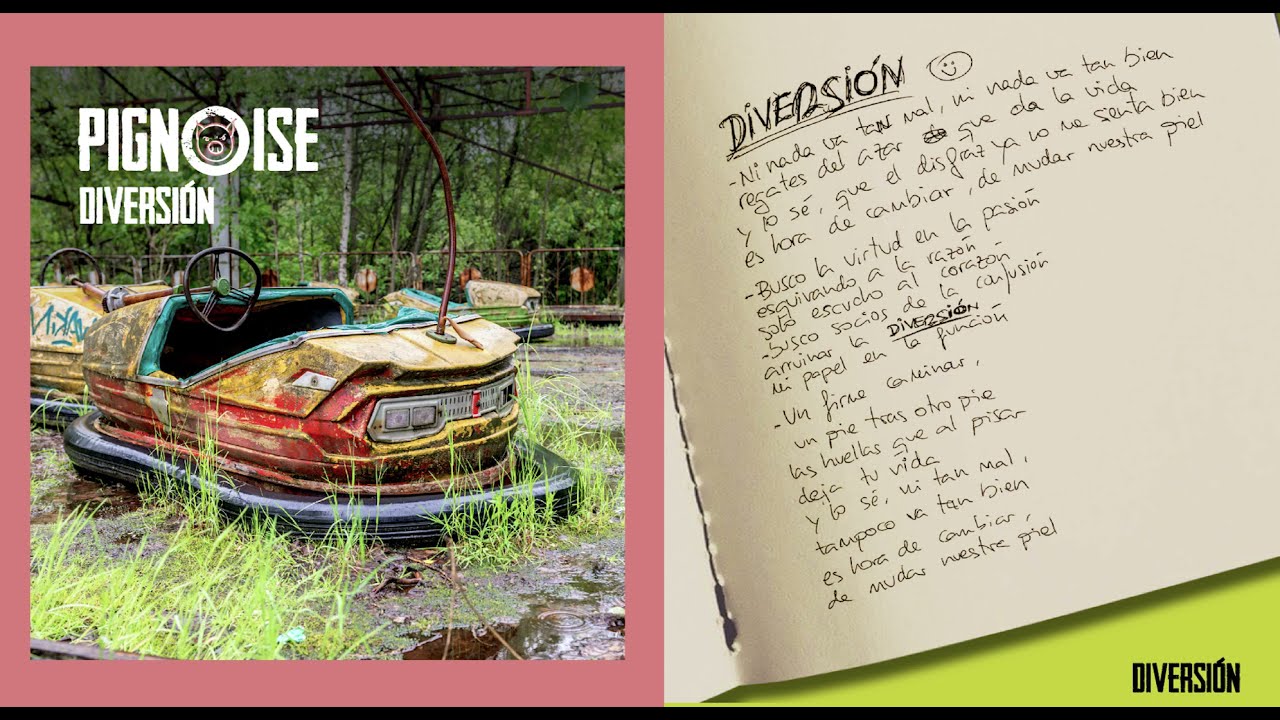 PIGNOISE
DIVERSIÓN
DIVERSIÓN
- Ni nada va tan mal, ni nada va tan bien
regates del azar que da la vida
y lo sé, que el disfraz ya no me sienta bien
es hora de cambiar, de mudar nuestra piel
- Busco la virtud en la pasión
esquivando a la razón
solo escucho al corazón
- Busco socios de la confusión
arruinar la DIVERSIÓN
mi papel en la función
- Un firme caminar,
un pie tras otro pie
las huellas que al pisar
deja tu vida
y lo sé, ni tan mal,
tampoco va tan bien
es hora de cambiar,
de mudar nuestra piel
DIVERSIÓN